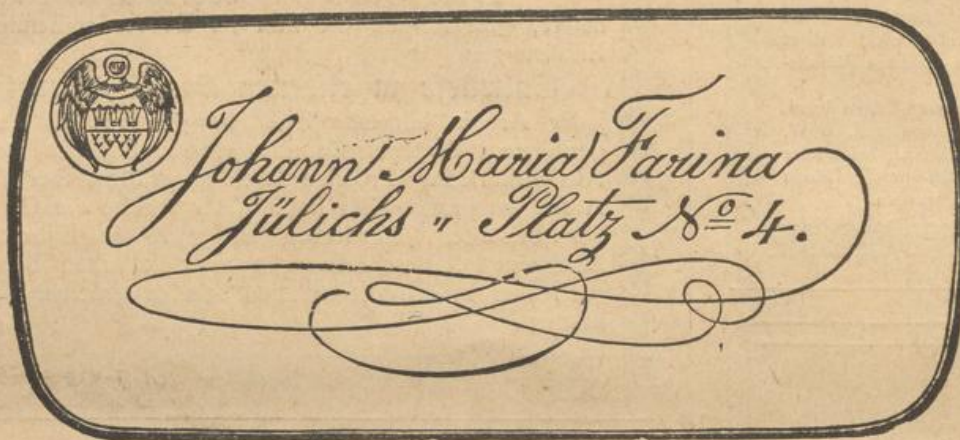 Johann Maria Farina
Jülichs „ Platz Nº 4.